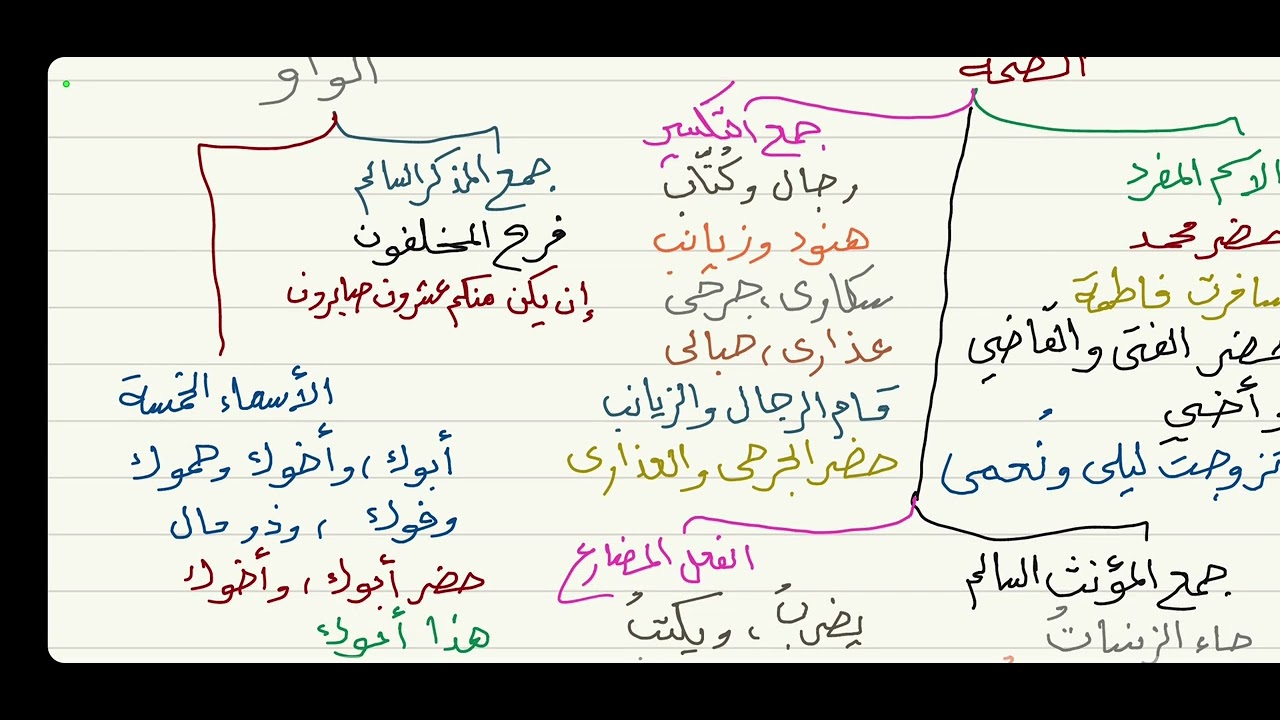 الضمة
الاسم المفرد
حضر محمد
سافرت فاطمة
حضر الفتى والقاضي
وأخي
تزوجت ليلى ونُعمى
جمع التكسير
رجال وكُتَّاب
هنود وزيانب
سكارى، جرحى
عذارى، حبالى
قام الرجال والزيانب
حضر الجرحى والعذارى
جمع المؤنث السالم
جاء الزينباتُ
الفعل المضارع
يضربُ، ويكتبُ
الواو
جمع المذكر السالم
فرح المخلفون
إن يكن منكم عشرون صابرون
الأسماء الخمسة
أبوك، وأخوك وحموك
وفوك، وذو مال
حضر أبوك، وأخوك
هذا أخوك